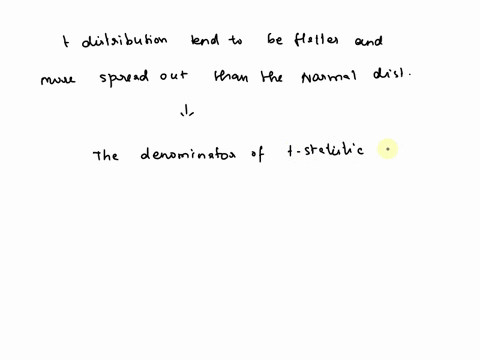 t distribution tend to be flatter and
more spread out than the Normal dist.
The denominator of t-statistic